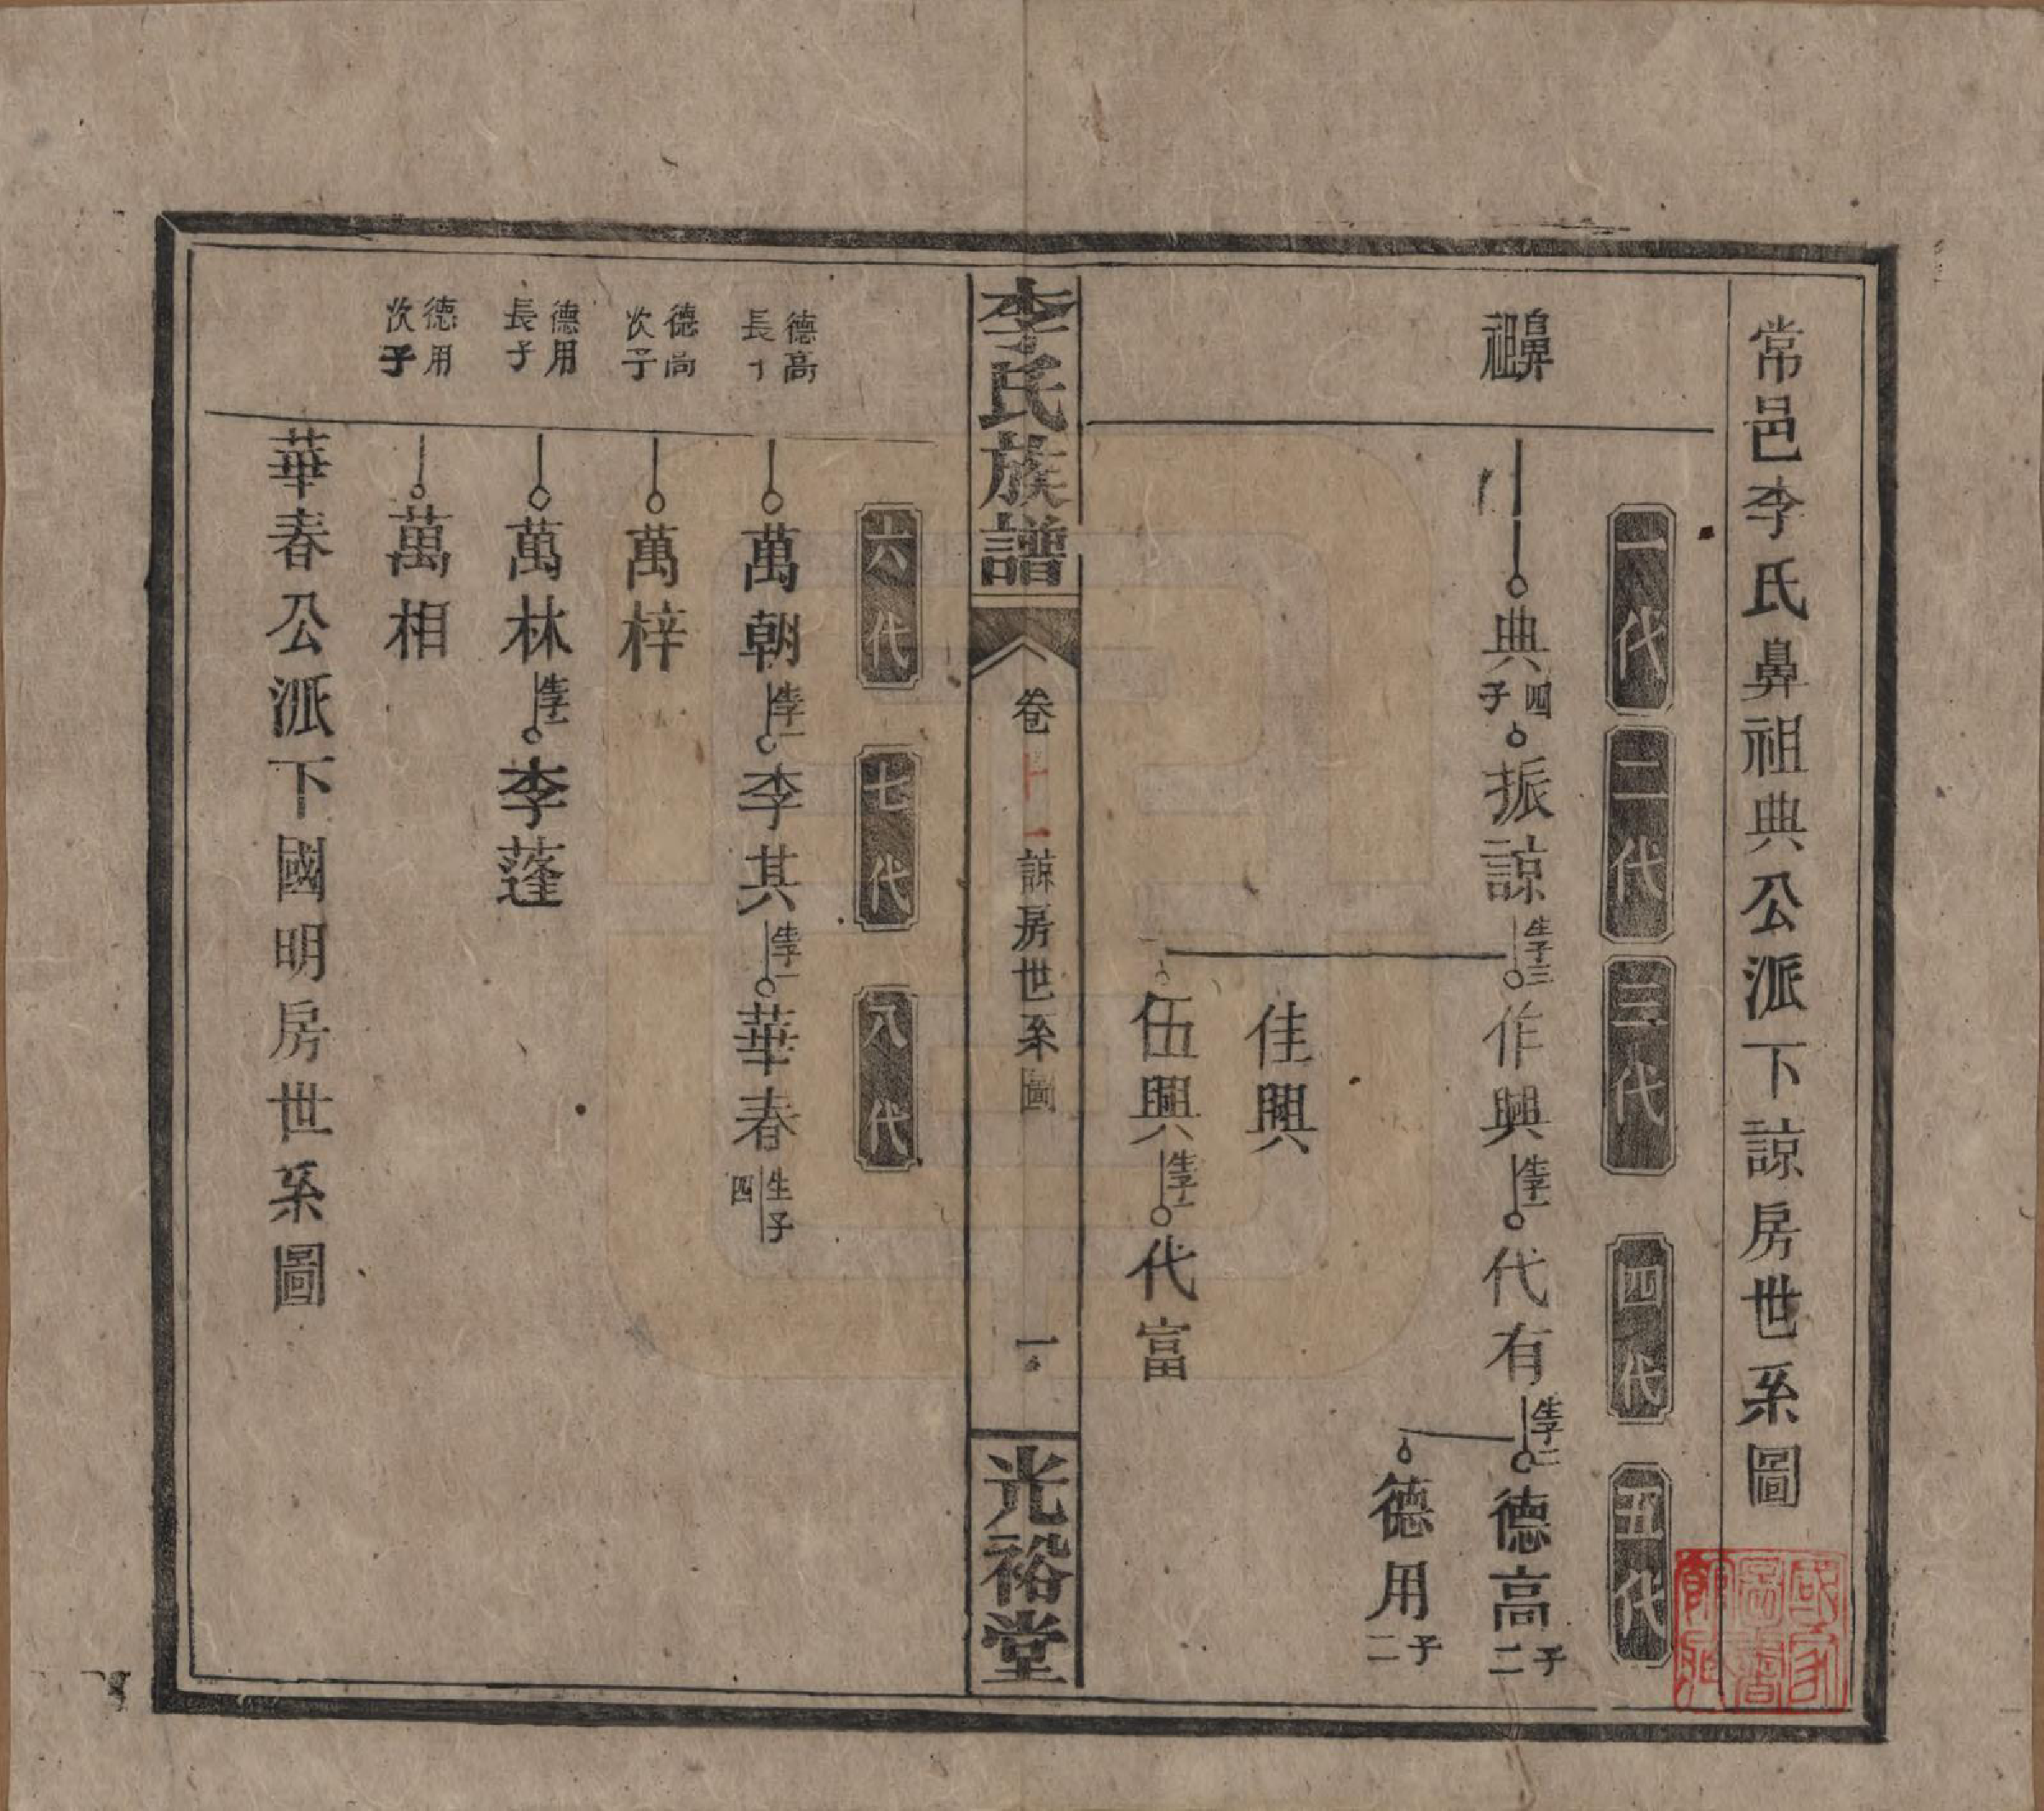 常邑李氏鼻祖典公派下諒房世系圖
一代
二代
三代
四代
五代
鼻祖
典
四子
振諒
生子三
作興
生子一
代有
生子二
德高
子二
德用
子二
佳興
伍興
生子一
代富
李氏族譜
卷十一
諒房世系圖
一
光裕堂
六代
七代
八代
德高長子
萬朝
生子一
李其
生子一
華春
生子四
德高次子
萬梓
德用長子
萬林
生子一
李蓬
德用次子
萬相
華春公派下國明房世系圖
國家圖書館藏